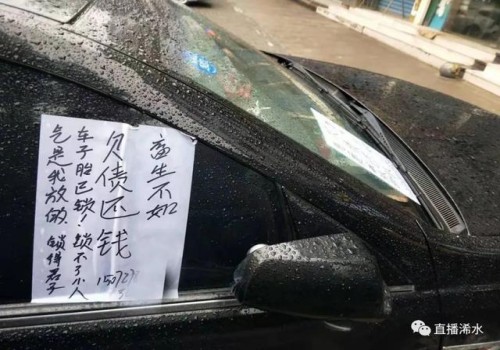 畜生不如
欠债还钱
车子胎已锁!锁不了小人
气是我放的 锁住君子
直播浠水